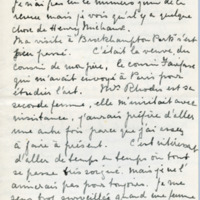 Je n'ai pas eu le numéro juin de la
revue mais je vois qu'il y a quelque
chose de Henry Michaux.
Ma visite à Brockhampton Park s'est
bien passé. C'était la veuve du
cousin de mon père, le cousin
qui m'avait envoyé à Paris pour
étudier l'art. Mrs Rhodes est sa
seconde femme, elle m'invitait avec
insistance, j'aurais préféré d'aller
une autre fois parce que j'ai assez
à faire à présent. C'est intéressant
d'aller de temps en temps où tout
se passe très soigné, mais je ne l'
aimerais pas pour toujours. Je me
sens trop surveillée quand une femme